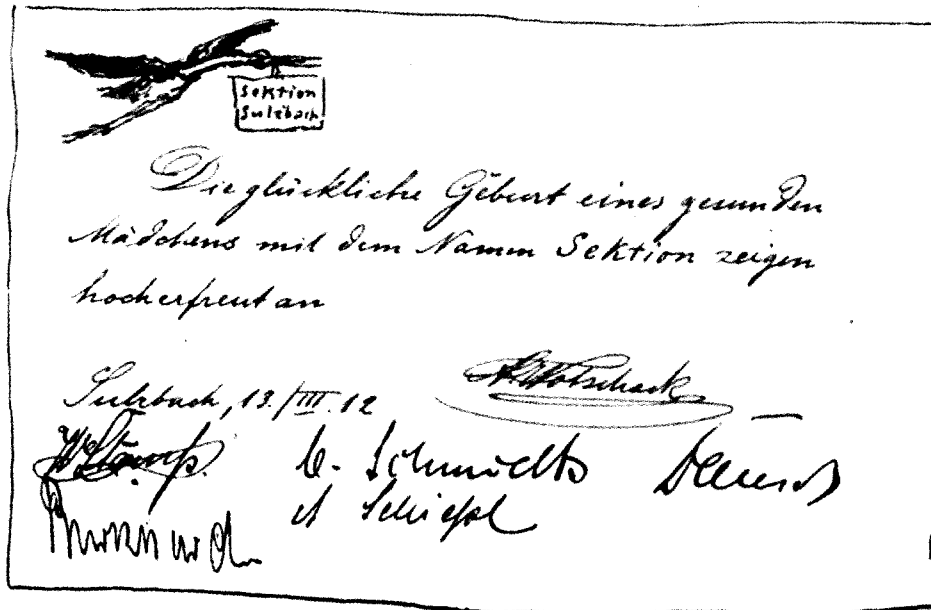 Sektion
Sulzbach
Die glückliche Geburt eines gesunden
Mädchens mit dem Namen Sektion zeigen
hocherfreut an
Sulzbach, 13./III.12
Schmidt
A Schießl